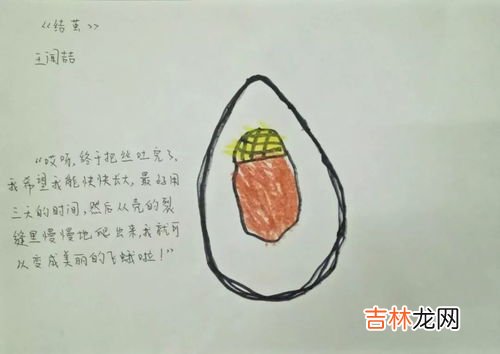 《结茧》
王闻喆
“哎呀,终于把丝吐完了,
我希望我能快快长大,最好用
三天的时间,然后从壳的裂
缝里慢慢地爬出来,我就可
以变成美丽的飞蛾啦!”
吉林龙网